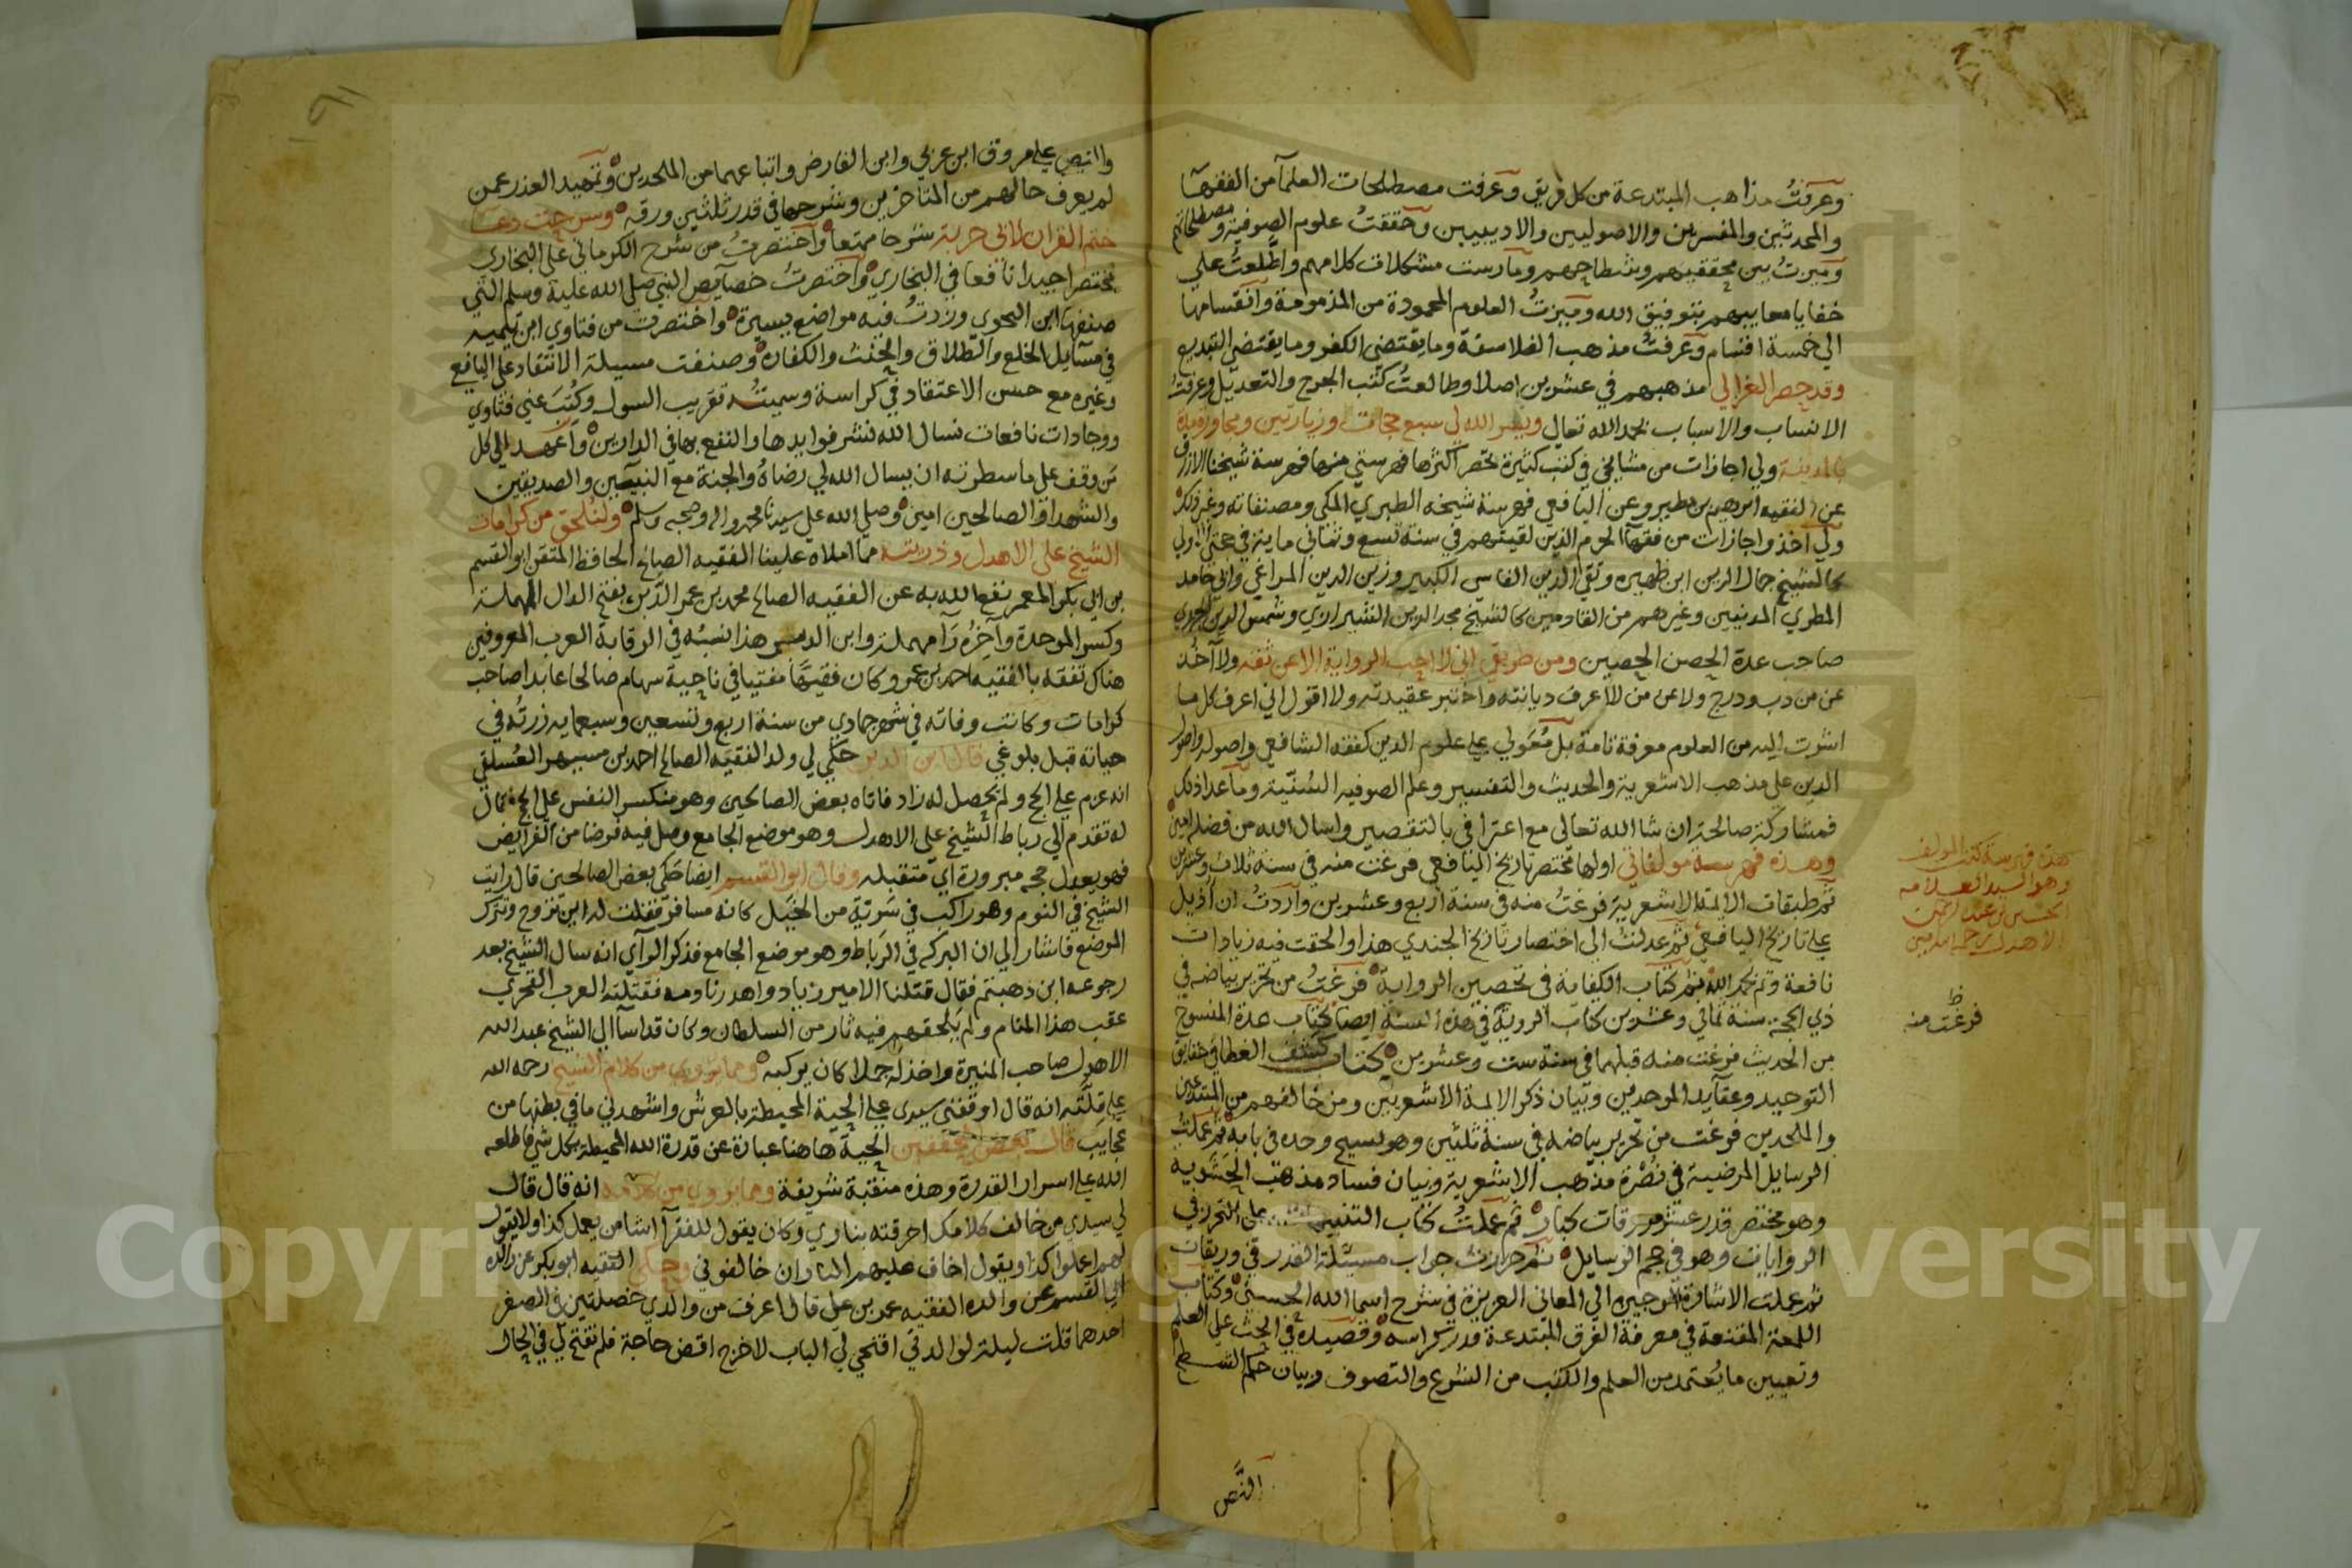 وعرفتُ مذاهب المبتدعة من كل فريق وعرفت مصطلحات العلمآ من الفقهآ
والمحدثين والمفسرين والاصوليين والاديبيين وحققتُ علوم الصوفية ومصطلحاتهم
وميزتُ بين محققيهم وشطاحهم ومارست مشكلات كلامهم واطلعتُ علي
خفايا معايبهم بتوفيق الله وميزتُ العلوم المحمودة من المذمومة وانقسامها
الي خمسة اقسام وعرفتُ مذهب الفلاسفة وما يقتضي الكفر وما يقتضي التبديع
وقد حصر الغزالي مذهبهم في عشرين اصلا وطالعتُ كتب الجرح والتعديل وعرفتُ
الانساب والاسباب بحمد الله تعالي ويسر الله لي سبع حجات وزيارتين ومجاورة
بالمدينة ولي اجازات من مشايخي في كتب كثيرة تحصر اكثرها فهرستي منها فهرسة شيخنا الازرق
عن الفقيه ابرهيم بن مطير وعن اليافعي فهرسة شيخه الطبري المكي ومصنفاته وغير ذلك
ولي آخذ واجازات من فقهآ الحرم الذين لقيتهم في سنة تسع وثماني ماية في حجتي الاولي
كالشيخ جمال الدين ابن ظهيره وتقي الدين الفاسي الكبير وزين الدين المراغي وابي حامد
المطري المدنيين وغيرهم من القادمين كالشيخ مجد الدين الشيرازي وشمس الدين الجزري
صاحب عدة الحصن الحصين ومن طريقي اني لا احب الرواية الا عن ثقه ولا آخذ
عن من دب ودرج ولا عن من لا اعرف ديانته واختبر عقيدته ولا اقول اني اعرف كل ما
اشرت اليه من العلوم معرفة تامة بل مُعَولي علي علوم الدين كفقه الشافعي واصوله واصول
الدين علي مذهب الاشعرية والحديث والتفسير وعلم الصوفيه السُنيّة وما عدا ذلك
فمشاركة صالحة ان شا الله تعالي مع اعترافي بالتقصير واسال الله من فضله امين
وهذه فهرسة مولفاتي اولها مختصر تاريخ اليافعي فرغت منه في سنة ثلاث وعشرين
ثم طبقات الايمة الاشعرية فرغتُ منه في سنة اربع وعشرين واردتُ ان اذيل
علي تاريخ اليافعي ثم عدلتُ الي اختصار تاريخ الجندي هذا والحقت فيه زيادات
نافعة وتم بحمد الله ثم كتاب الكفاية في تحصين الرواية فرغتُ من تحرير بياضه في
ذي الحجه سنة ثماني وعشرين كتاب الروية في هذه السنة ايضا كتاب عدة المنسوخ
من الحديث فرغت منه قبلهما في سنة ست وعشرين كتاب كشف الغطا في حقايق
التوحيد وعقايد الموحدين وبيان ذكر الايمة الاشعريين ومن خالفهم من المبتدعين
والملحدين فرغت من تحرير بياضه في سنة ثلثين وهو نسيج وحده في بابه ثم عملتُ
الرسايل المرضية في نُصْرة مذهب الاشعرية وبيان فساد مذهب الحشوية
وهو مختصر قدر عشر ورقات كبار ثم عملتُ كتاب التنبيه علي التحرز في
الروايات وهو في حجم الرسايل ثم حررتُ جواب مسئلة القدر في وريقات
ثم عملت الاشارة الوجيزه الي المعاني العزيزة في شرح اسما الله الحسنى وكتاب
اللمعة المقنعة في معرفة الفرق المبتدعة قدر كراسه وقصيده في الحث علي العلم
وتعيين ما يُعتمد من العلم والكتب من الشرع والتصوف وبيان حكم الشطح
والنص
هذه فهرسة كتب المولف
وهو السيد العلامه
الحسين بن عبد الرحمن
الاهدل رحمه الله امين
ظ
فرغت منه
والنص علي مروق ابن عربي وابن الفارض واتباعهما من الملحدين وتمهيد العذر عمن
لم يعرف حالهم من المتاخرين وشرحها في قدر ثلثين ورقه وشرحت دعا
ختم القران لابي حربة شرحا ممتعا واختصرتُ من شرح الكرماني علي البخاري
مختصرا جيدا نافعا في البخاري واختصرتُ خصايص النبي صلي الله عليه وسلم التي
صنفها ابن النحوي وزدتُ فيه مواضع يسيرة واختصرت من فتاوي ابن تيميه
في مسايل الخلع والطلاق والحنث والكفاره وصنفت مسيلة الانتقاد علي اليافع
وغيره مع حسن الاعتقاد في كراسة وسميتُه تقريب السول وكُتِبَ عني فتاوي
ووجادات نافعات نسال الله نشر فوايدها والنفع بها في الدارين واعهد الي كل
من وقف علي ما سطرته ان يسال الله لي رضاهُ والجنة مع النبيين والصديقين
والشهدا والصالحين امين وصلي الله علي سيدنا محمد واله وصحبه وسلم ولنُلحق من كرامات
الشيخ علي الاهدل وذريته مما املاه علينا الفقيه الصالح الحافظ المتقن ابو القسم
بن ابي بكر المعمر نفع الله به عن الفقيه الصالح محمد بن عمر الدَّبر بفتح الدال المهملة
وكسر الموحدة وآخرُه رَا مهملة وابن الدبر هذا نسبُه في الرقابة العرب المعروفين
هناك تفقه بالفقيه احمد بن عمر وكان فقيهًا مفتيا في ناحية سهام صالحا عابدا صاحب
كرامات وكانت وفاته في شهر جمادي من سنة اربع وتسعين وسبعمايه زرتُه في
حياته قبل بلوغي قال ابن الدبر حكَي لي ولد الفقيه الصالح احمد بن مسيهر العُسلقي
انه عزم علي الحج ولم يحصل له زاد فاتاه بعض الصالحين وهو منكسر النفس علي الحج فقال
له تقدم الي رباط الشيخ علي الاهدل وهو موضع الجامع وصل فيه فرضا من الفرايض
فهو يعدل حجه مبرورة اي متقبله وقال ابو القسم ايضا حكَي بعض الصالحين قال رايت
الشيخ في النوم وهو راكب في سَريّة من الخيل كانه مسافر فقلت له اين تزوح وتترك
الموضع فاشار الي ان البركه في الرباط وهو موضع الجامع فذكر الرآي انه سال الشيخ بعد
رجوعه اين ذهبتم فقال قتلنا الامير زياد واهدرنا دمه فقتلته العرب القحري
عقب هذا المنام ولم يلحقهم فيه ثار من السلطان وكان قد اسآ الي الشيخ عبد الله
الاهدل صاحب المنيرة واخذ له جملا كان يركبه ومما يُروي من كلام الشيخ رحمه الله
علي قلّته انه قال اوقفني سيدي علي الحية المحيطة بالعرش واشهدني ما في بطنها من
عجايب قال بعض المحققين الحية هاهنا عبارة عن قدرة الله المحيطة بكل شي فاطلعه
الله علي اسرار القدرة وهذه منقبة شريفة ومما يروي من كلامه انه قال قال
لي سيدي من خالف كلامك احرقته بناري وكان يقول للفقرآ اشا من يعمل كذا ولا يقول
لهم اعملوا كذا ويقول اخاف عليهم النار ان خالفوني وحكي الفقيه ابو بكر عن والده
ابي القسم عن والده الفقيه عمر بن علي قال اعرف من والدي خصلتين في الصغر
احدهما قلت ليلة لوالدتي افتحي لي الباب لاخرج اقض حاجة فلم تفتح لي في الحال
Copyright © King Saud University